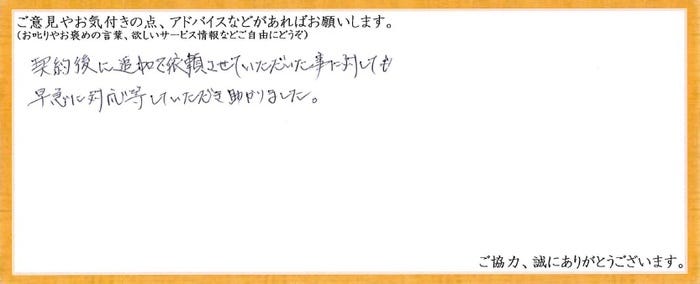 ご意見やお気付きの点、アドバイスなどがあればお願いします。
(お叱りやお褒めの言葉、欲しいサービス情報などご自由にどうぞ)
契約後に追加で依頼させていただいた事に対しても
早急に対応等していただき助かりました。
ご協力、誠にありがとうございます。